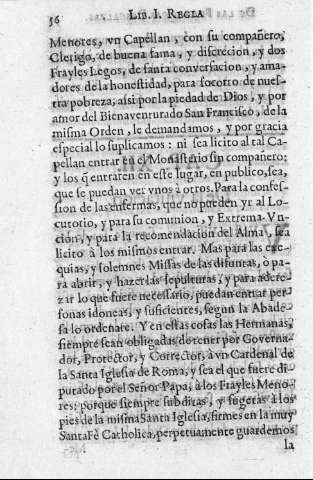 56 LIB. I. REGLA
Menores, vn Capellan, con su compañero,
Clerigo, de buena fama, y discrecion, y dos
Frayles Legos, de santa conversacion, y ama-
dores de la honestidad, para socorro de nues-
tra pobreza; asi por la piedad de Dios, y por
amor del Bienaventurado San Francisco, de la
misma Orden, le demandamos, y por gracia
especial lo suplicamos: ni sea licito al tal Ca-
pellan entrar en el Monasterio sin compañero:
y los q̃ entraren en este lugar, en publico, sea,
que se puedan ver vnos à otros. Para la confes-
sion de las enfermas, que no pueden yr al Lo-
cutorio, y para su comunion, y Extrema-Vn-
ciòn, y para la recomendacion del Alma, sea
licito à los mismos entrar. Mas para las exe-
quias, y solemnes Missas de las difuntas, ò pa-
ra abrir, y hazer las sepulturas, y para adere-
zar lo que fuere necessario, puedan entrar per-
sonas idoneas, y suficientes, segun la Abade-
sa lo ordenare. Y en estas cosas las Hermanas,
siempre sean obligadas de tener por Governa-
dor, Protector, y Corrector, à vn Cardenal de
la Santa Iglesia de Roma, y sea el que fuere di-
putado por el Señor Papa, à los Frayles Meno-
res: porque siempre subditas, y sugetas à los
pies de la misma Santa Iglesia, firmes en la muy
Santa Fè Catholica, perpetuamente guardemos
la